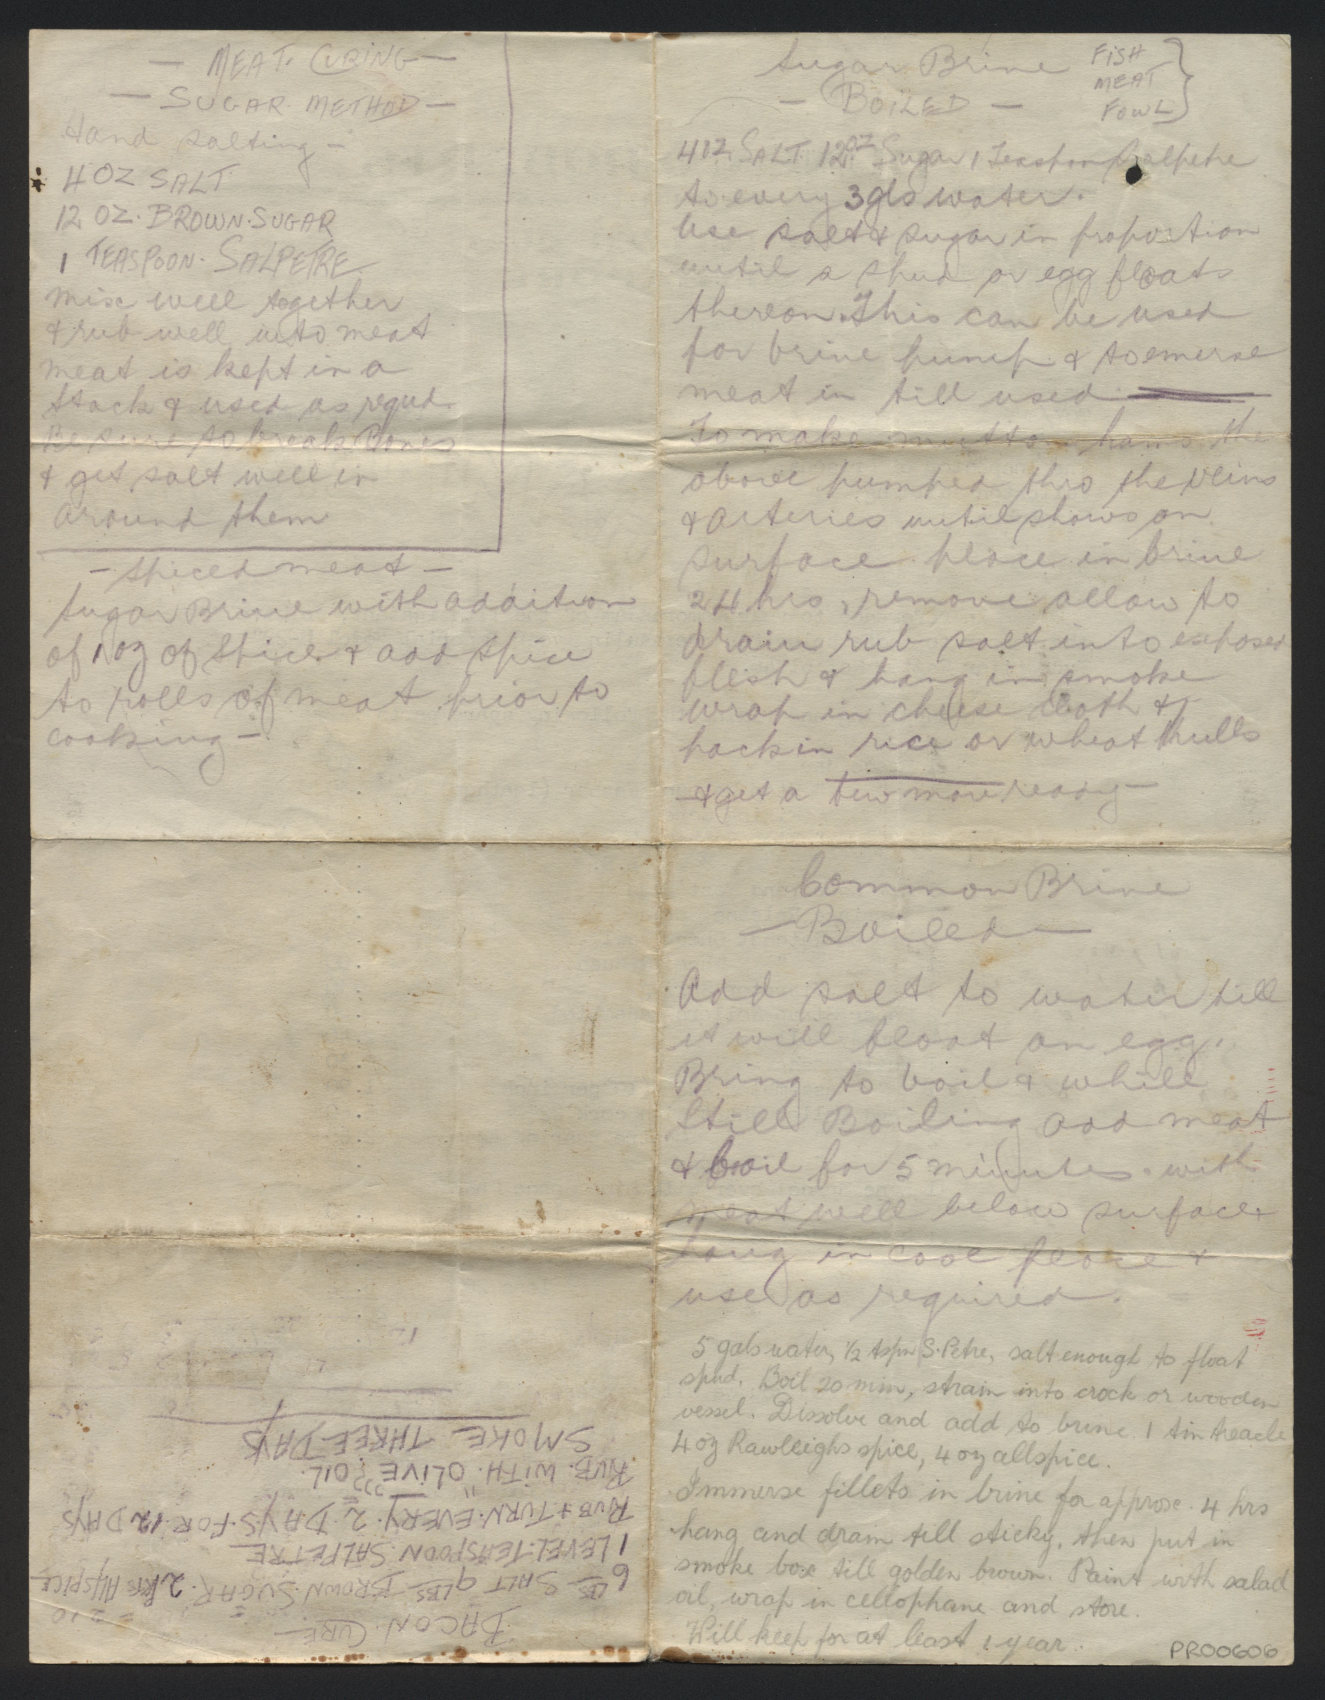 — MEAT. CURING —
— SUGAR METHOD —
Hand salting —
4 OZ SALT
12 OZ. BROWN. SUGAR
1 TEASPOON. SALPETRE
Mix well together
& rub well into meat
meat is kept in a
stack & used as requd.
Be sure to break Bones
& get salt well in
around them
— Spiced meat —
Sugar Brine with addition
of 1 oz of Spice & add spice
to rolls of meat prior to
cooking —
Sugar Brine
— BOILED —
FISH
MEAT
FOWL
SALT 12 oz Sugar 1 Teaspon Salpetre
to every 3 gls water.
Use salt & sugar in proportion
until a spud or egg floats
thereon. This can be used
for brine pump & to emerse
meat in till used
To make mutton hams the
above pumped thro the veins
& arteries until shows on
surface place in brine
24 hrs, remove allow to
drain rub salt into exposed
flesh & hang in smoke
wrap in cheese cloth &
pack in rice or wheat hulls
& get a few more ready —
Common Brine
— Boiled —
Add salt to water till
it will float an egg.
Bring to boil & while
still Boiling add meat
& boil for 5 minutes. with
meat well below surface &
hang in cool place &
use as required.
5 gals water, 1/2 tspn S. Petre, salt enough to float
spud. Boil 20 min, strain into crock or wooden
vessel. Dissolve and add to brine 1 tin treacle
4 oz Rawleighs spice, 4 oz allspice.
Immerse fillets in brine for approx. 4 hrs
hang and drain till sticky, then put in
smoke box till golden brown. Paint with salad
oil, wrap in cellophane and store.
Will keep for at least 1 year.
PR00606
BACON. CURE
6 LBS SALT 9 LBS BROWN. SUGAR. 2 PKTS ALLSPICE
1 LEVEL. TEASPOON. SALPETRE
RUB & TURN. EVERY 2 DAYS. FOR 12 DAYS
RUB. WITH. OLIVE ??? OIL.
SMOKE THREE DAYS